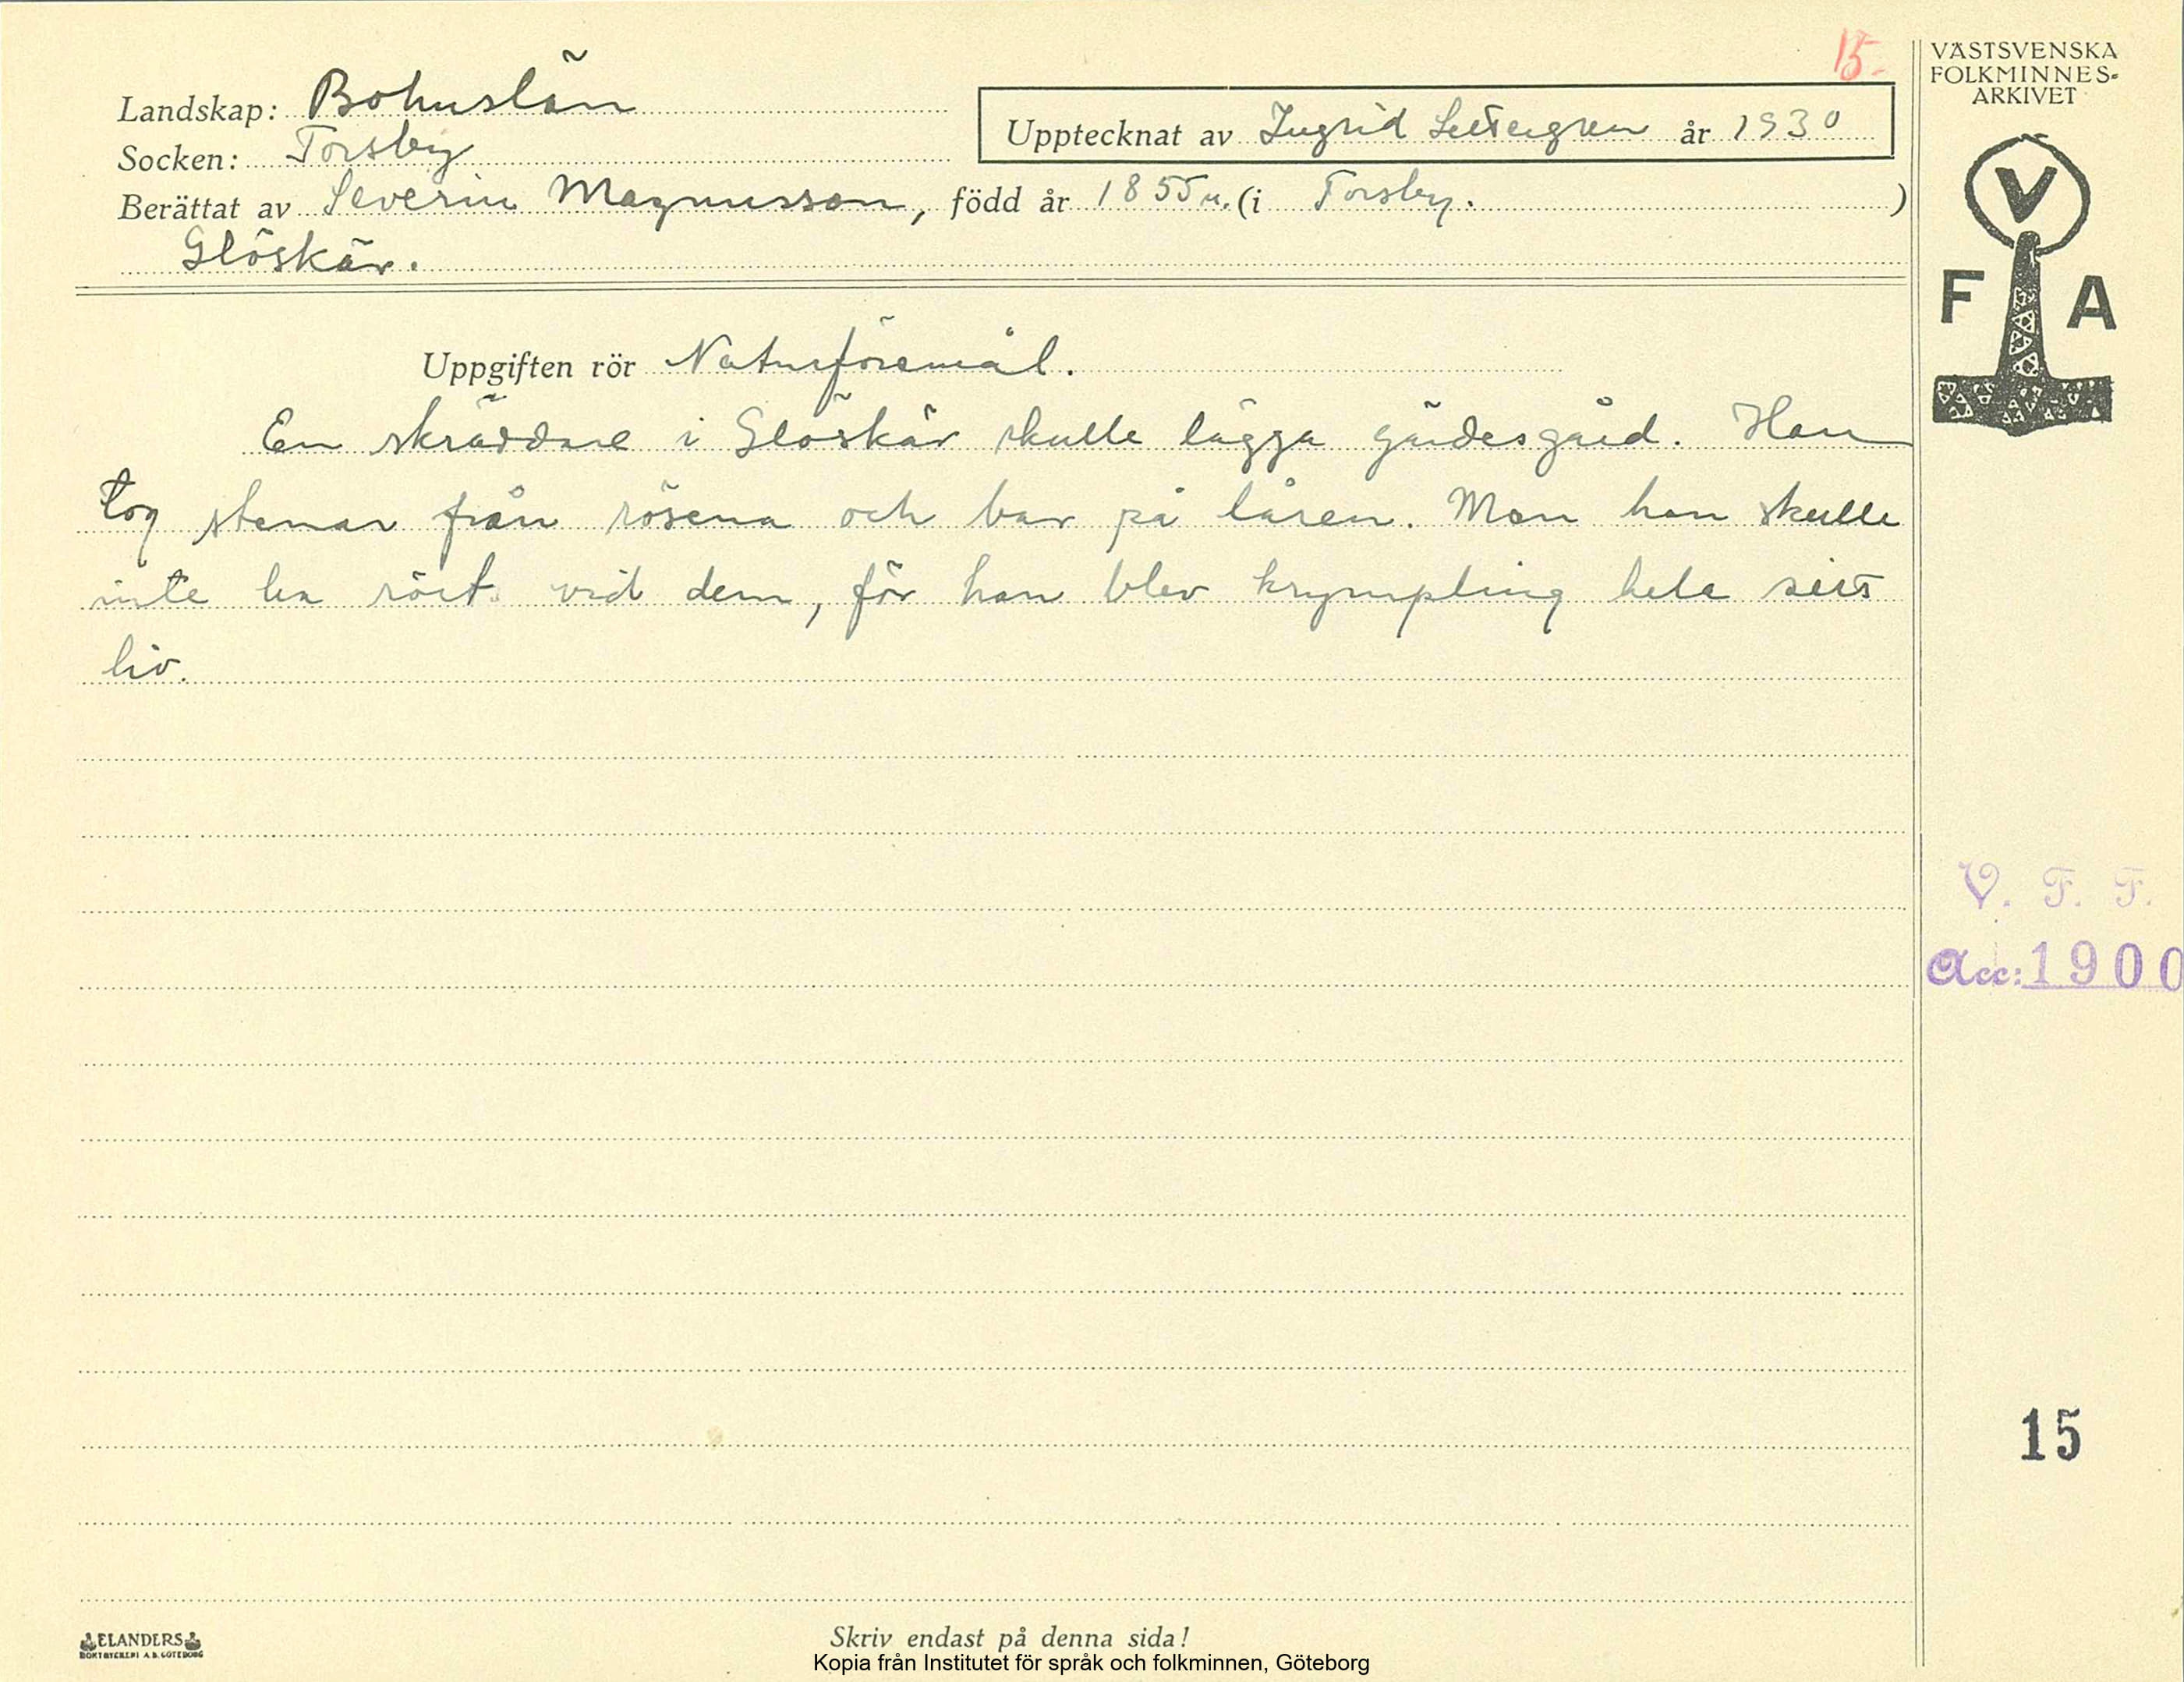 15.
VÄSTSVENSKA
FOLKMINNES-
ARKIVET
Landskap: Bohuslän
Upptecknat av Ingrid Settergren år 1930
Socken: Torsby
Berättat av Severin Magnusson, född år 1855 (i Torsby. )
Glöskär.
V
F A
Uppgiften rör Naturföremål.
En skräddare i Glöskär skulle lägga gärdesgård. Han
tog stenar från rösena och bar på låren. Men han skulle
inte ha rört vid dem, för han blev krympling hela sitt
liv.
V. F. F.
Acc: 1900
15
ELANDERS
BOKTRYCKERI A.B. GÖTEBORG
Skriv endast på denna sida!
Kopia från Institutet för språk och folkminnen, Göteborg